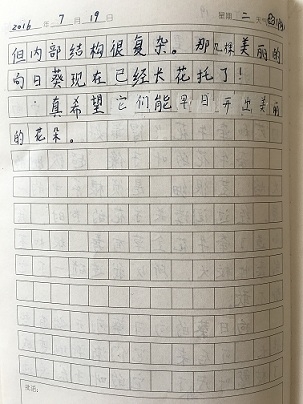 2016 年 7 月 19 日 星期 二 天气
但内部结构很复杂。那几棵美丽的
向日葵现在已经长花托了!
真希望它们能早日开出美丽
的花朵。
批语: